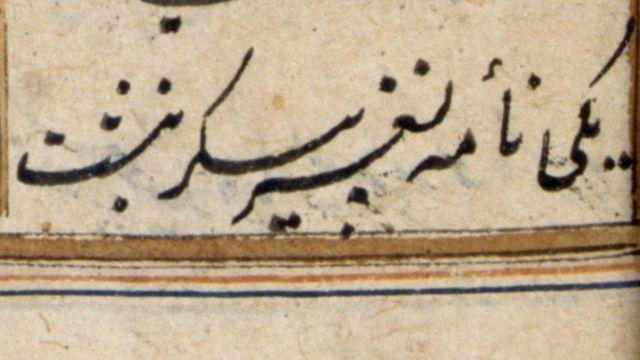 یکی نامه نغز پیکر نبشت